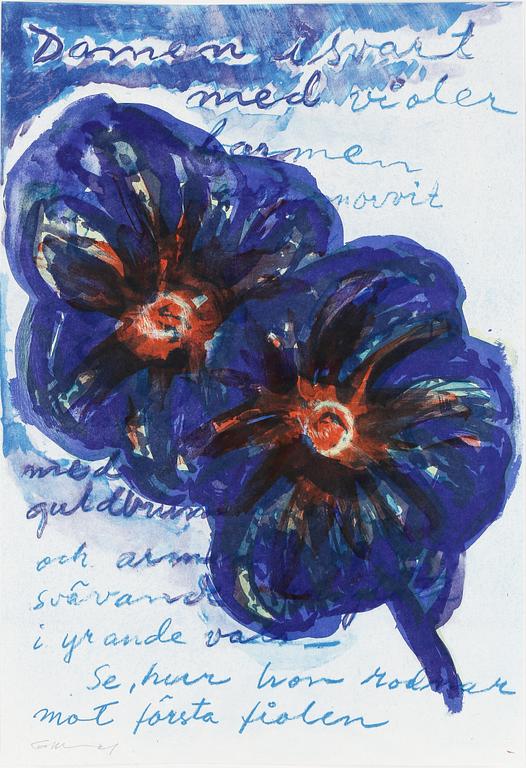 Damen i svart
med violer
barmen
norvit
med
guldbrun
och arm
svävande
i yrande vals
Se, hur hon rodnar
mot första fiolen